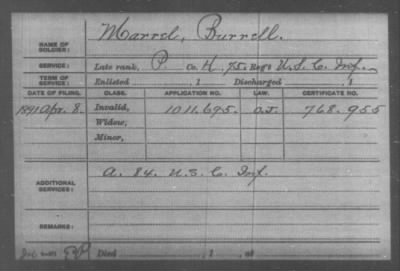 NAME OF SOLDIER: Marrel, Burrell.
SERVICE: Late rank, P. Co. H, 75. Reg't U.S.C. Inf.
TERM OF SERVICE: Enlisted , 1 Discharged , 1
DATE OF FILING. CLASS. APPLICATION NO. LAW. CERTIFICATE NO.
1891 Apr. 8. Invalid, 1011.695. 768.955
Widow,
Minor,
ADDITIONAL SERVICES: A. 84. U.S.C. Inf.
REMARKS:
Died , 1 , at